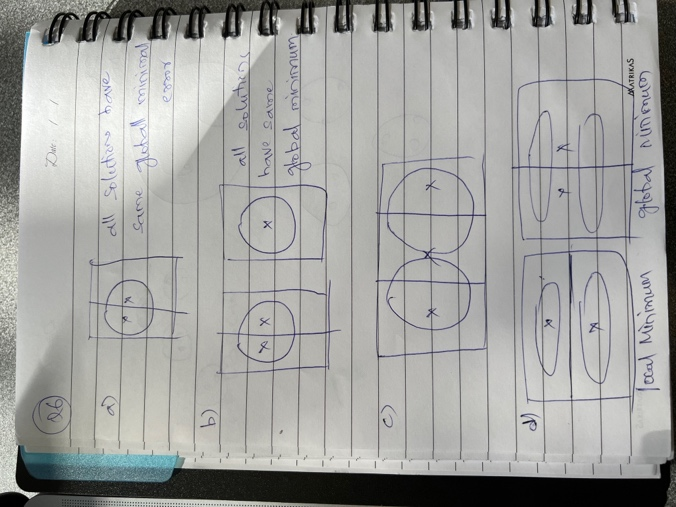 Date / /
Q6
a)
all solutions have
same globall minimal
error
b)
all solutions
have same
global minimum
c)
d)
local Minimum
global minimum
MATRIKAS